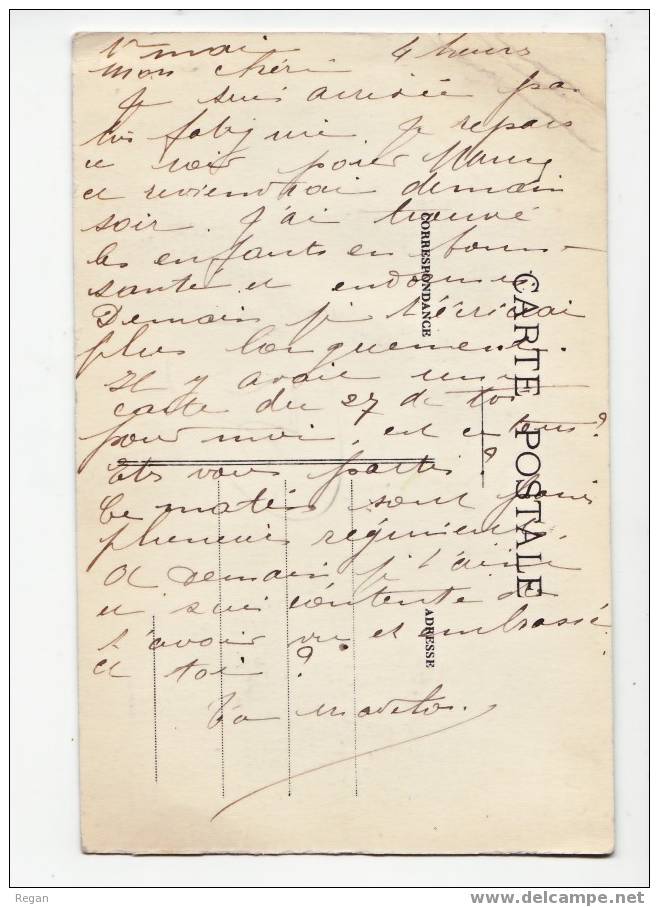 1er mai 4 heures
Mon chéri
Je suis arrivée pas
très fatiguée je repars
ce soir pour
et reviendrai demain
soir. J'ai trouvé
les enfants en bonne
santé et endormis
Demain je t'écrirai
plus longuement.
Il y avait une
carte du 27 de toi
pour moi, est ce tous?
Etes vous partis?
Ce matin sont partis
plusieurs régiments.
A Demain je t'aime
et suis contente de
t'avoir vu et embrassé
et toi ?
Ta
CORRESPONDANCE
CARTE POSTALE
ADRESSE
Regan
www.delcampe.net